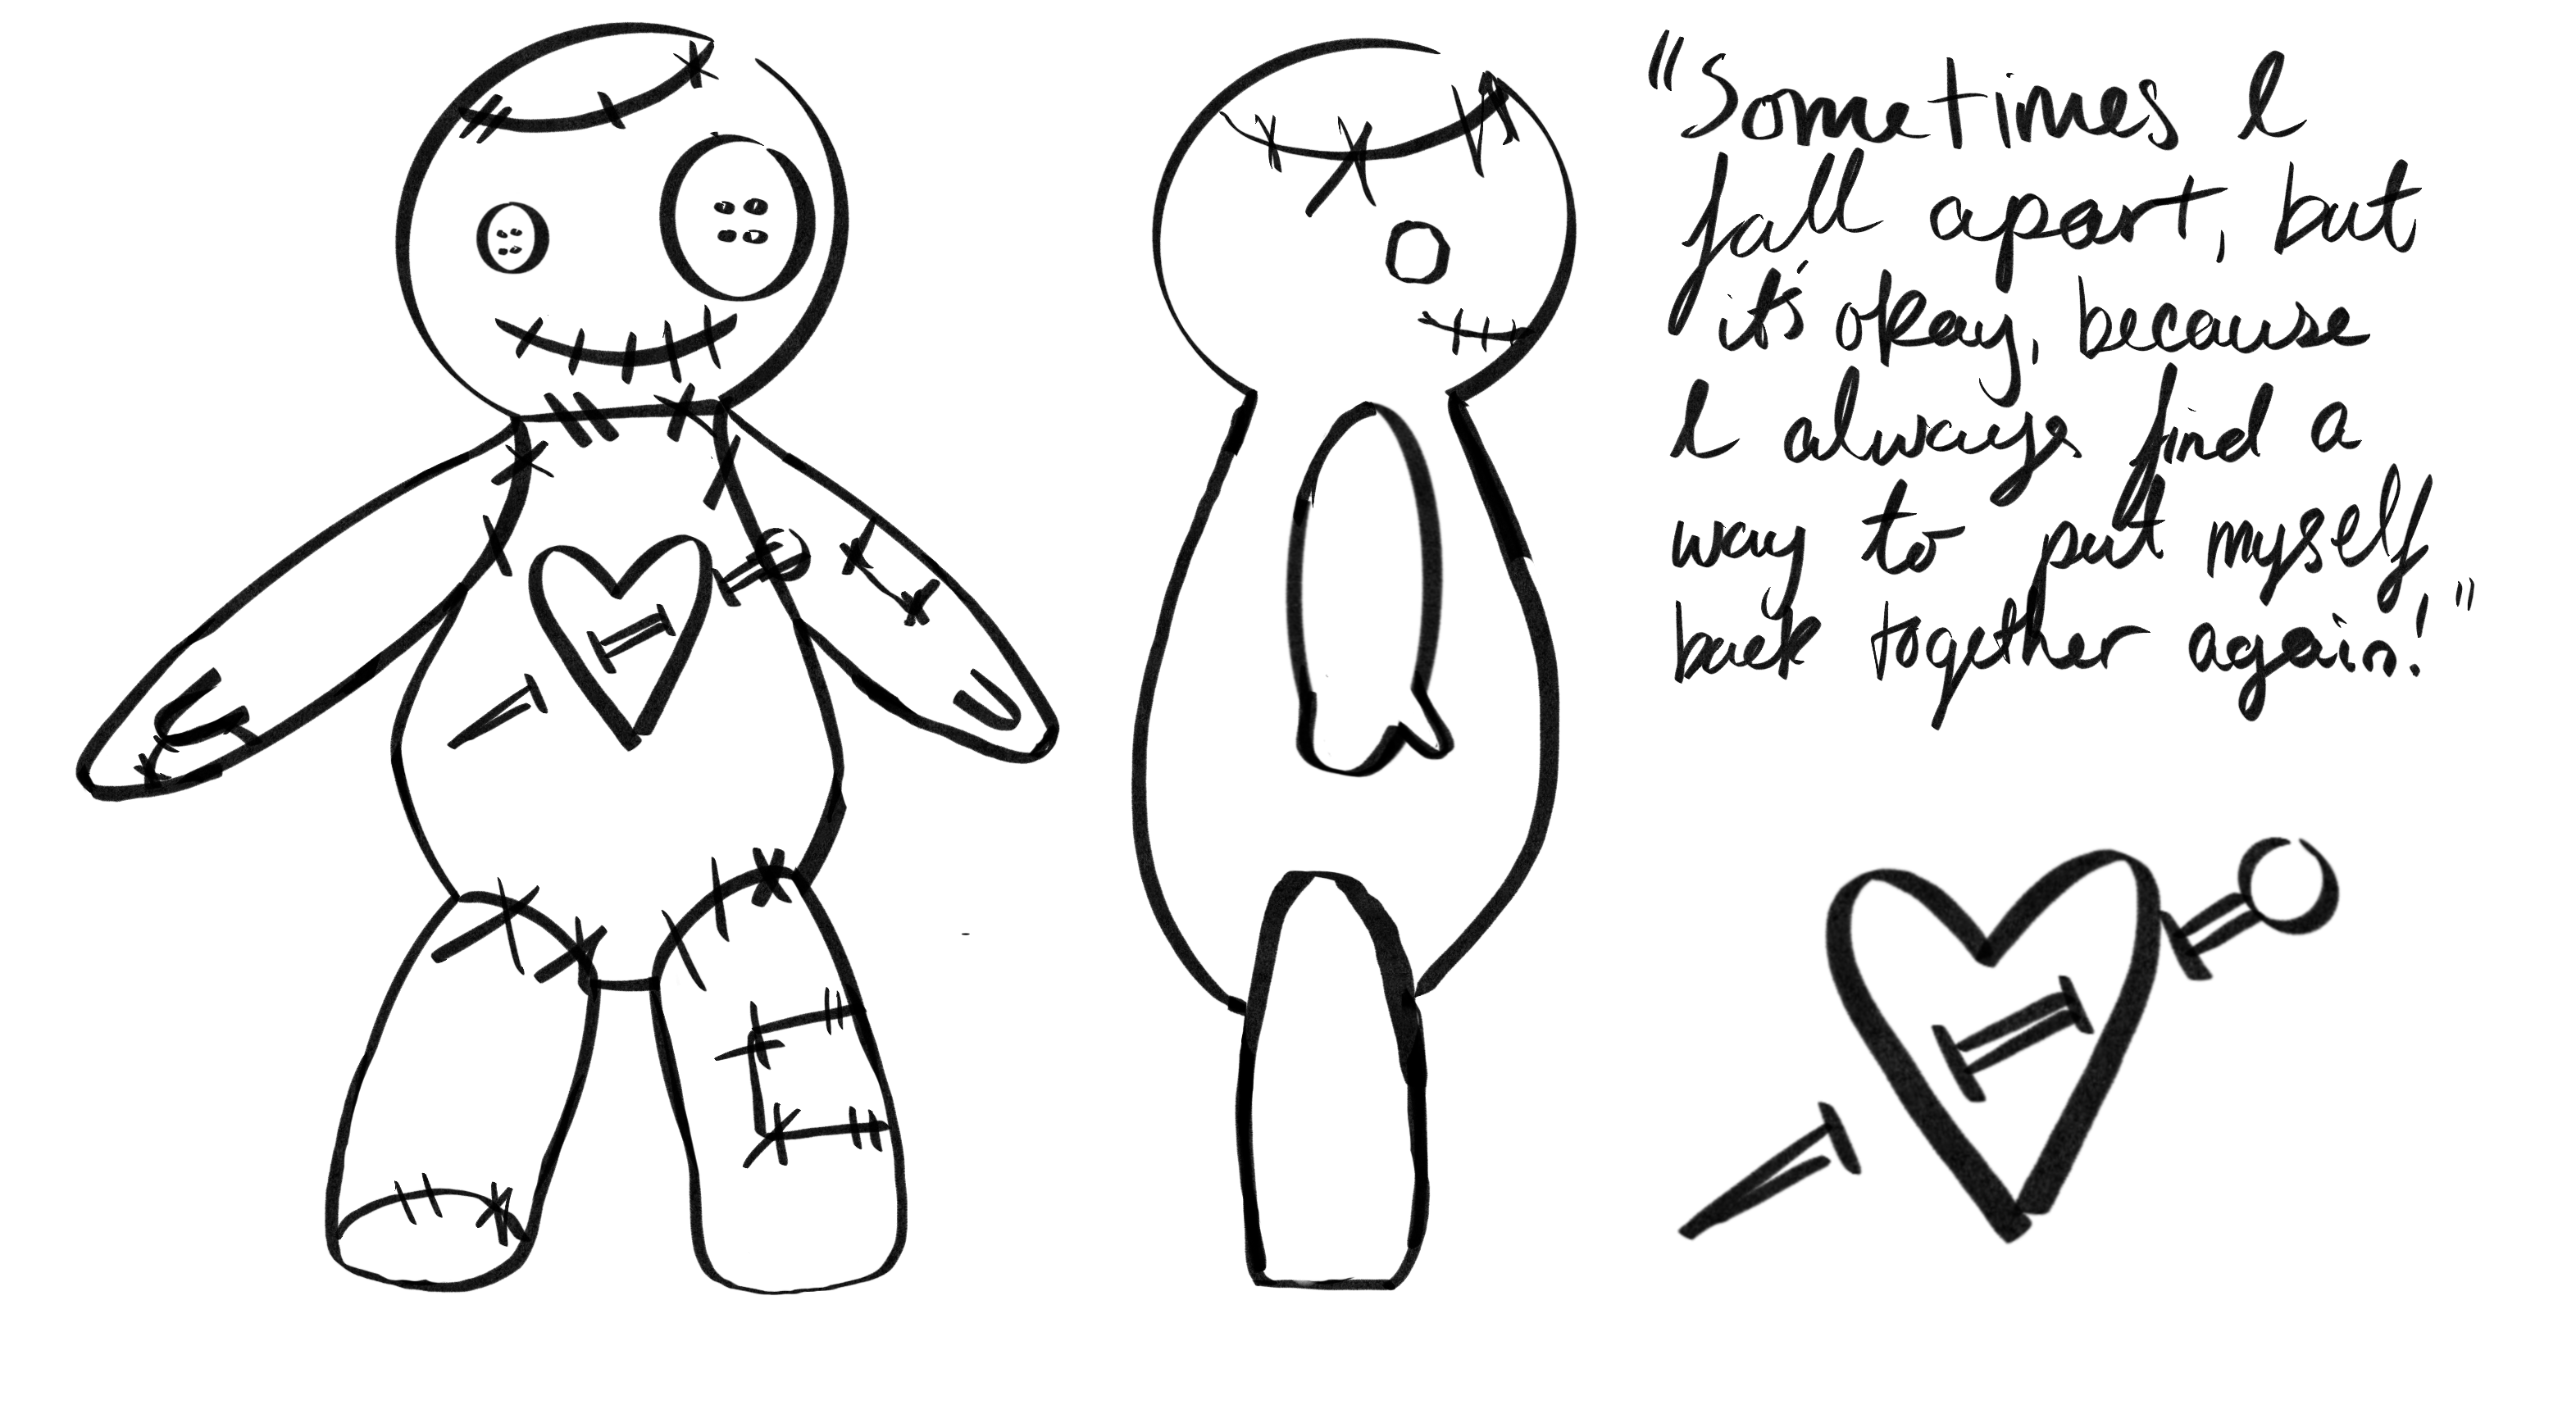 "Sometimes I
fall apart, but
it's okay, because
I always find a
way to put myself
back together again!"